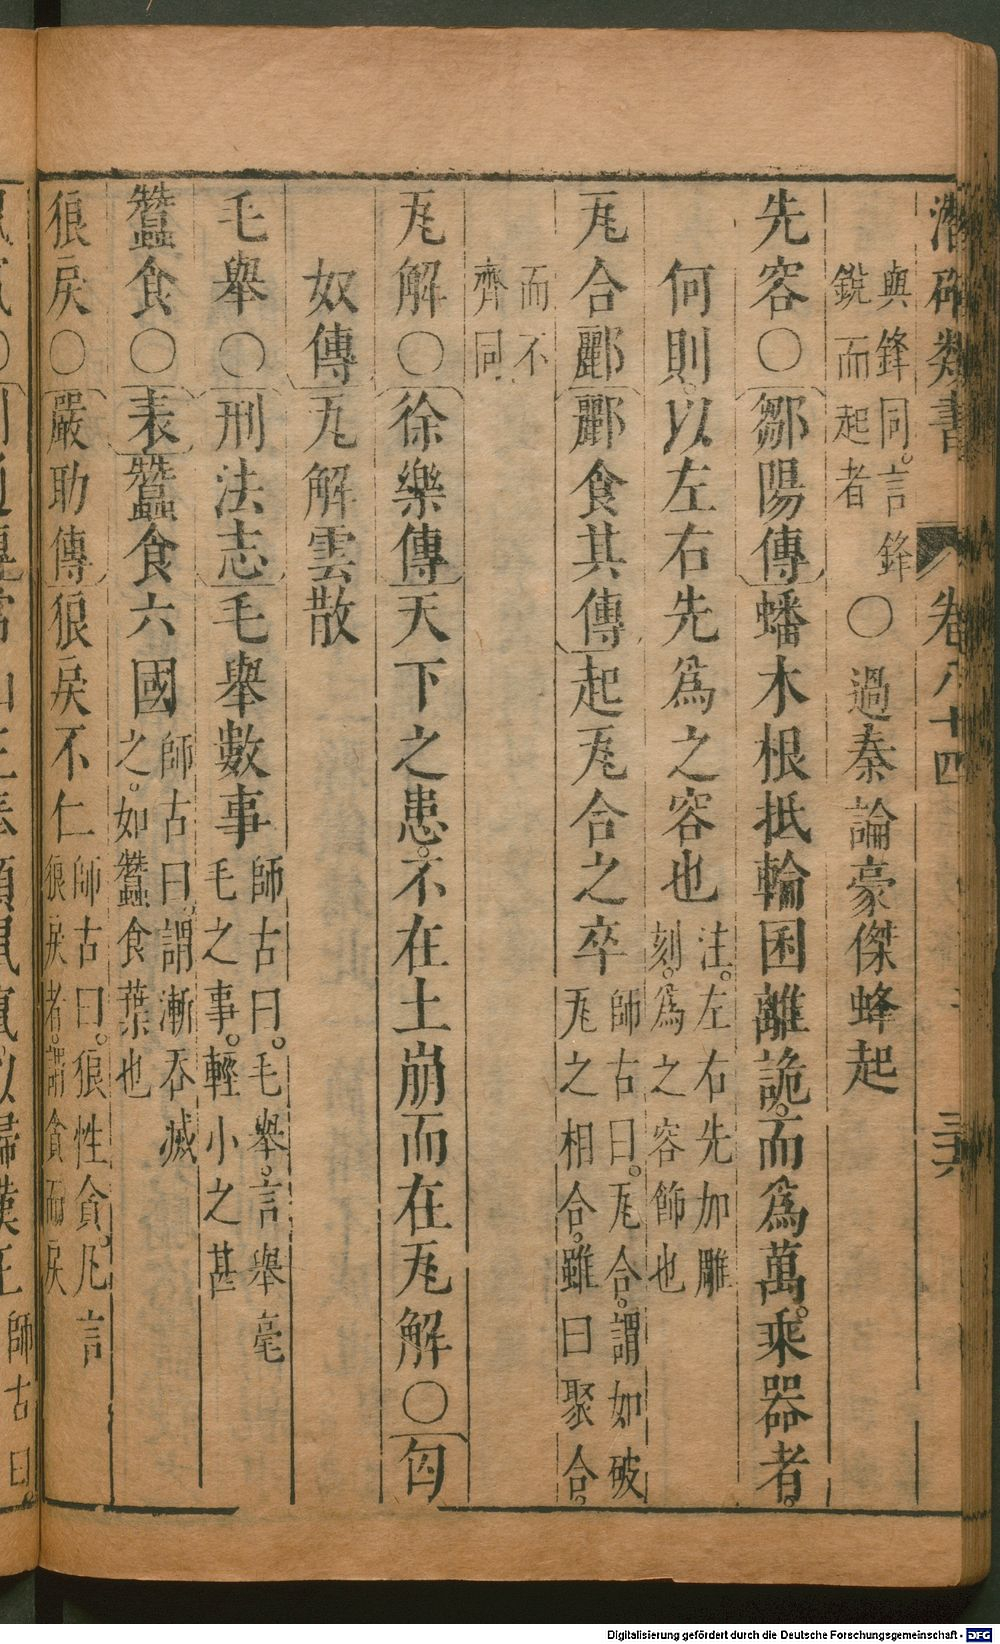 潛確類書 卷八十四 三六
與鋒同。言鋒
銳而起者
〇過秦論豪傑蜂起
先容〇鄒陽傳蟠木根抵輪囷離詭。而爲萬。乘器者。
何則。以左右先爲之容也
注。左右先加雕
刻。爲之容飾也
瓦合酈酈食其傳起瓦合之卒
師古曰。瓦合。謂如破
瓦之相合。雖曰聚合。
而不
齊同
瓦解〇徐樂傳天下之患。不在土崩而在瓦解〇匈
奴傳瓦解雲散
毛舉〇刑法志毛舉數事
師古曰。毛舉。言舉毫
毛之事。輕小之甚
蠶食〇表蠶食六國
師古曰。謂漸吞滅
之。如蠶食葉也
狼戾〇嚴助傳狼戾不仁
師古曰。狼性貪。凡言
狼戾者。謂貪而戾
師古曰。
Digitalisierung gefördert durch die Deutsche Forschungsgemeinschaft - DFG